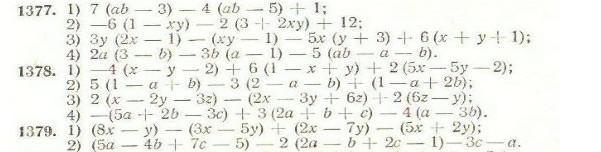 1377. 1) 7 (ab — 3) — 4 (ab — 5) + 1;
2) —6 (1 — xy) — 2 (3 + 2xy) + 12;
3) 3y (2x — 1) — (xy — 1) — 5x (y + 3) + 6 (x + y + 1);
4) 2a (3 — b) — 3b (a — 1) — 5 (ab — a — b).
1378. 1) —4 (x — y — 2) + 6 (1 — x + y) + 2 (5x — 5y — 2);
2) 5 (1 — a + b) — 3 (2 — a — b) + (1 — a + 2b);
3) 2 (x — 2y — 3z) — (2x — 3y + 6z) + 2 (6z — y);
4) —(5a + 2b — 3c) + 3 (2a + b + c) — 4 (a — 3b).
1379. 1) (8x — y) — (3x — 5y) + (2x — 7y) — (5x + 2y);
2) (5a — 4b + 7c — 5) — 2 (2a — b + 2c — 1) — 3c — a.